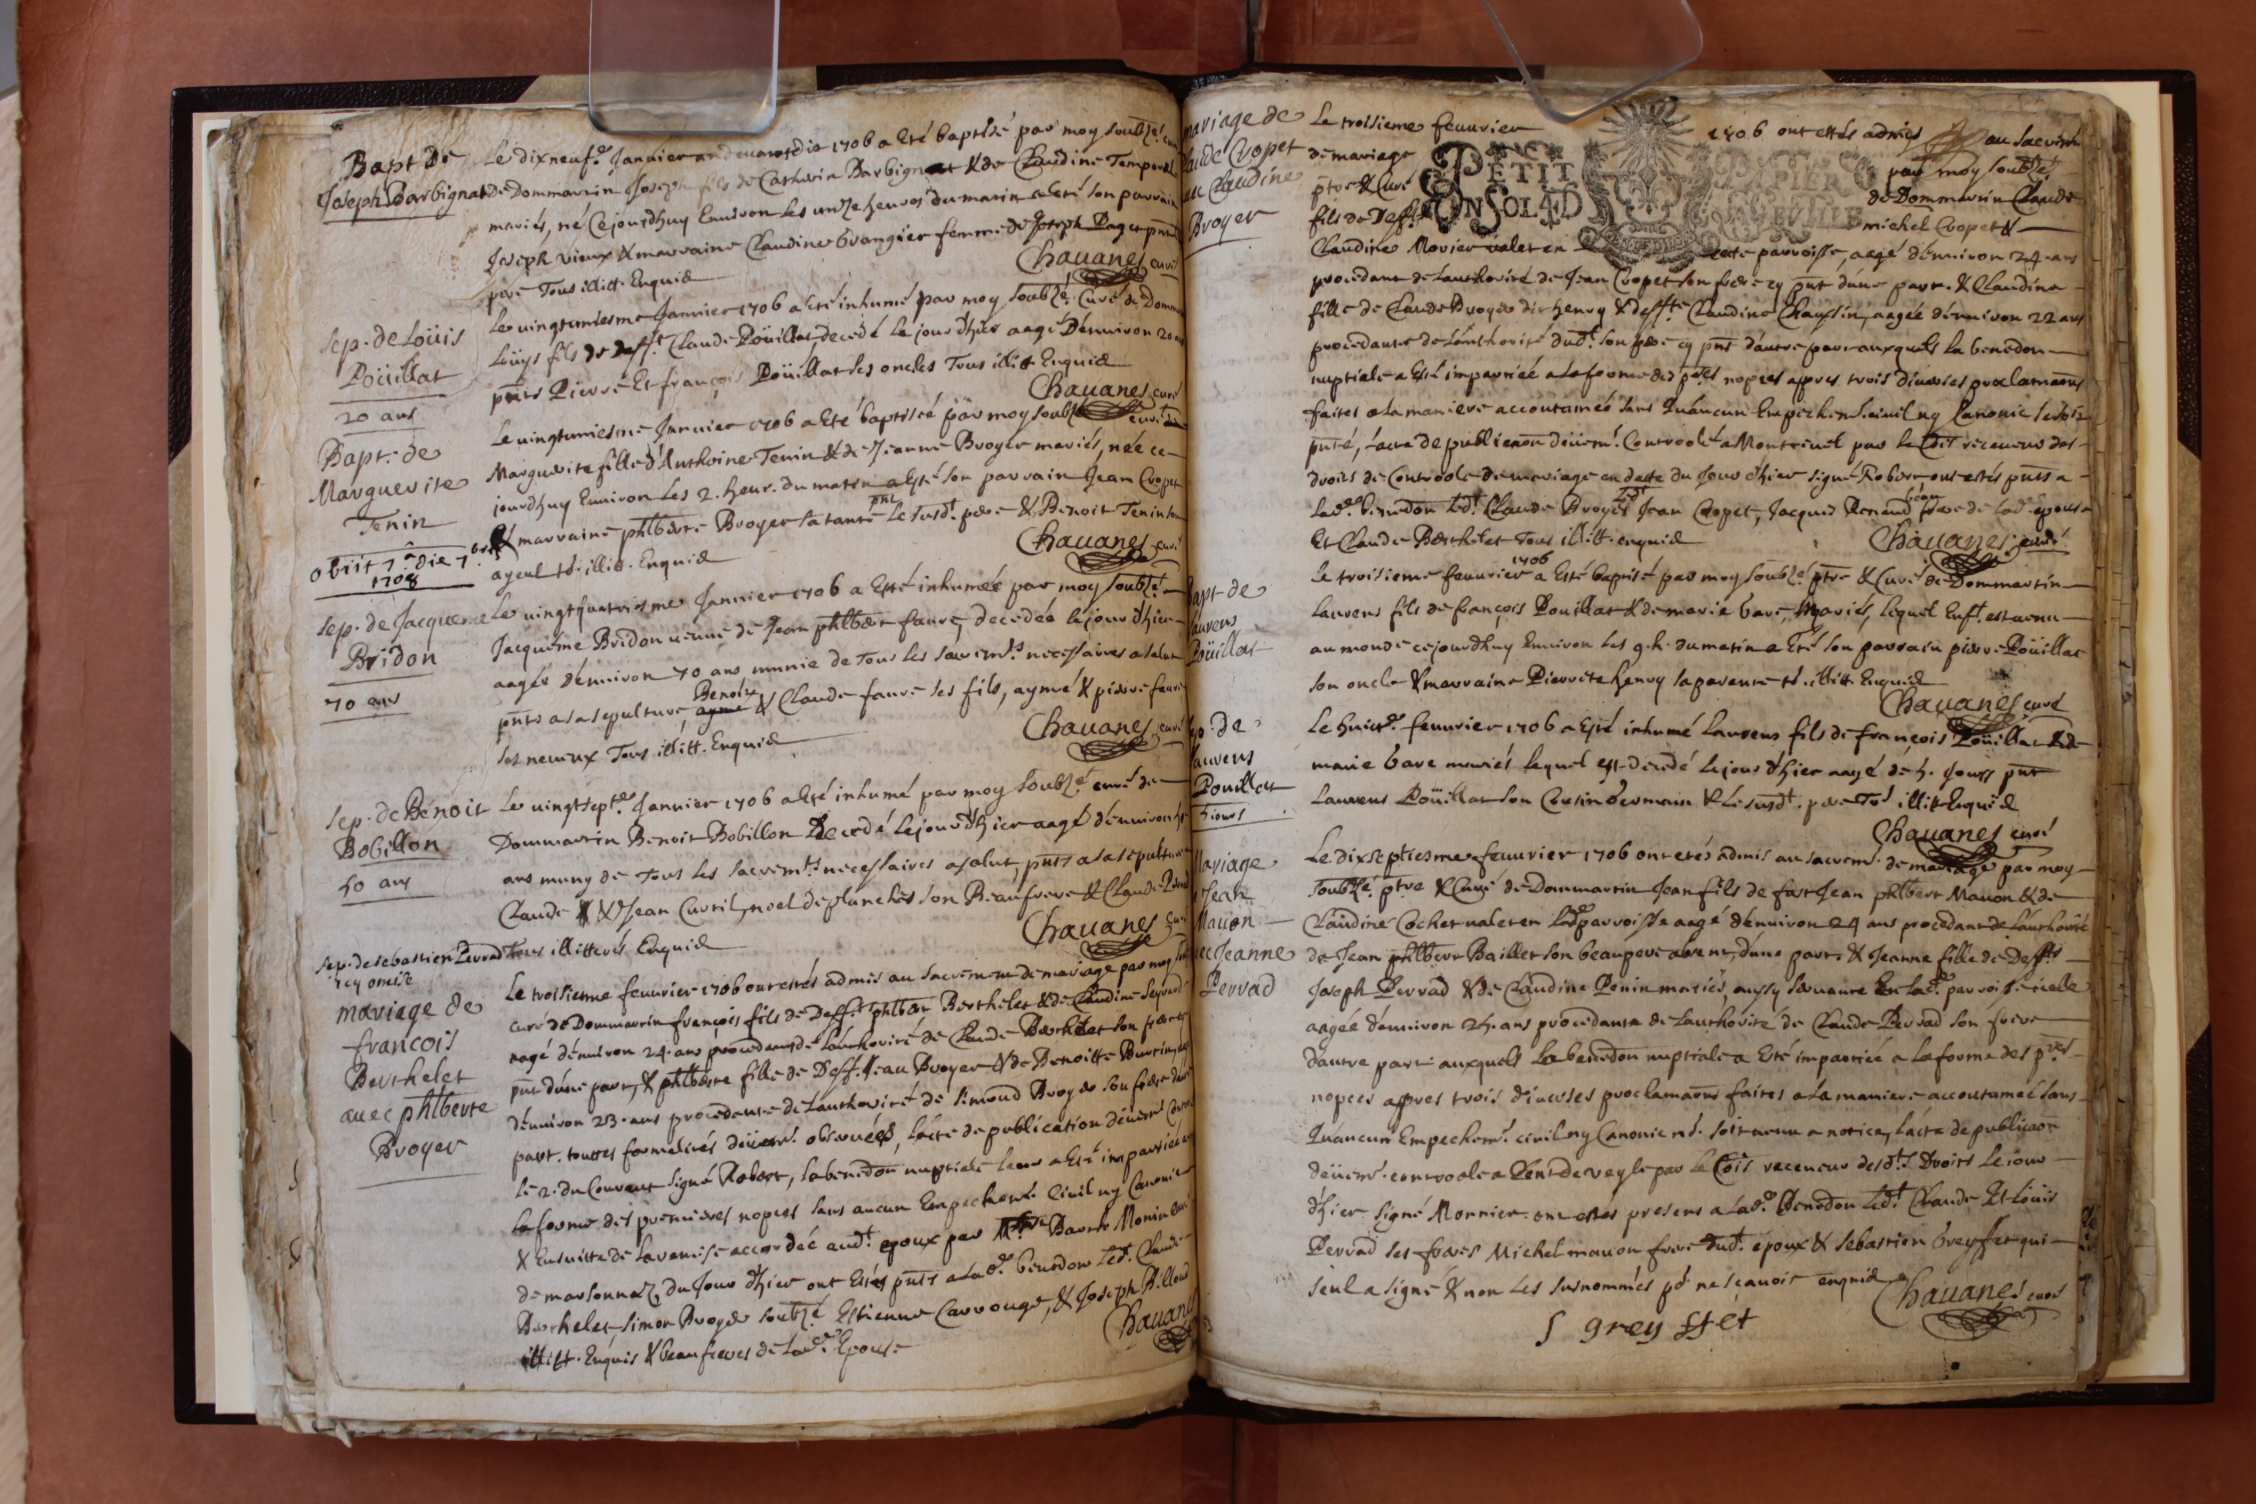 Bapt de
Joseph Barbignat
Le dixneuf.e Janvier 1706 a Eté baptisé par moy soubzé
de Dommartin Joseph fils de Cathrin Barbignat & de Claudine Temporal
mariés, né Cejourdhuy Environ les unze heures du matin a Eté son parrain
Joseph vieux & marraine Claudine Grangier femme de Joseph Pager pnts
pere Tous illitt. Enquis
Chauanes curé
sep. de Loüis
Poüillat
20 ans
Le vingtuniesme Janvier 1706 a Eté inhumé par moy soubzé Curé de Domm
Loüys fils de deff.t Claude Poüillat, decedé le jour d'hier aagé d'environ 20 a
pnts Pierre Et françois Poüillat ses oncles Tous illitt Enquis
Chauanes curé
Bapt. de
Marguerite
Tenin
obiit 7.a die 7.bris
1708
Le vingtuniesme Janvier 1706 a Eté baptisée par moy soubzé curé
Marguerite fille d'Anthoine Tenin & de Jeanne Broyer mariés, née ce
jourdhuy Environ les 2. heur. du matin a Eté son parrain Jean Cropet
& marraine phlberte Broyer sa tante pnt Le susd.t pere & Benoit Tenin son
ayeul ts. illitt. Enquis
Chauanes curé
sep. de Jacqueme
Bridon
70 ans
Le vingtquatriesme Janvier 1706 a Esté inhumée par moy soubzé
Jacquême Bridon veuve de Jean phlbert faure, decedée le jour d'hier
aagée d'environ 70 ans munie de Tous les sacrem.ts necessaires a salut
pnts a sa sepulture, ayme Benoist & Claude faure ses fils, aymé & pierre faure
ses neveux Tous illitt. Enquis
Chauanes curé
sep. de Benoit
Bobillon
50 ans
Le vingtsept.e Janvier 1706 a Eté inhumé par moy soubzé curé de
Dommartin Benoit Bobillon Decedé le jour d'hier aagé d'environ 50
ans muny de Tous les sacrem.ts necessaires a salut, pnts a sa sepulture
Claude & Jean Curtil, noel deplanches son Beaufrere & Claude
Tous illitterés Enquis
Chauanes curé
sep. de sebastien Perrad
icy omise
mariage de
francois
Berthelet
auec phlberte
Broyer
Le troisieme feuurier 1706 ont estés admis au sacrement de mariage par moy
curé de Dommartin françois fils de Deff.ts phlbert Berthelet & de Claudine
aagé d'environ 24. ans procedant de l'authorité de Claude Berthelet son frere cy
pnt d'une part, & phlberte fille de Deff.t Jean Broyer & de Benoitte
d'environ 23. ans procedante de l'authorité de Simond Broyer son frere d'autre
part. touttes formalités deüem.t obseruées, l'acte de publication deüem.t
le 2. du Courant signé Robert, la benedon nuptiale leur a Eté impartiée
la forme des premieres nopces sans aucun Empechem.t Civil ny Canonique
& Ensuitte de la remise accordée aud.t epoux par M.re Monin curé
de marsonnaz, du Jour d'hier ont Estés pnts a lad.e benedon led.t Claude
Berthelet, simon Broyer soubzé Estienne Carrouge, & Joseph Billoud
illitt. Enquis & beaufreres de lad.e Epouse
Chauanes
mariage de
Claude Cropet
avec Claudine
Broyer
Le troisieme feuurier 1706 ont estés admis au sacrem
de mariage par moy soubzé
ptre & Curé de Dommartin Claude
fils de Deff.t michel Cropet &
PETIT PAPIER
Claudine Morier valet en cette parroisse, aagé d'environ 24. ans
procedant de l'authorité de Jean Cropet son frere cy pnt d'une part. & Claudine
fille de Claude Broyer dit henry & deff.te Claudine Chaussin, aagée d'environ 22 ans
procedante de l'authorité dud.t son pere cy pnt d'autre part auxquels la benedon
nuptiale a Esté impartiée a la forme des p.res nopces apres trois diverses proclamaons
faites a la maniere accoutumée sans qu'aucun Empechem.t civil ny Canonic
puté, l'acte de publicaon deüem.t Controolé a Montrevel par le receveur des
droits de Controole de mariage en datte du Jour d'hier signé Robert ont estés pnts a
lad.e benedon led.t Claude Broyer Jean Cropet, Jacques Renaud frere de lad.e epouse
Et Claude Berthelet Tous illitt. enquis
Chauanes curé
Bapt. de
Laurens
Poüillat
Le troisieme feuurier 1706 a Esté baptisé par moy soubzé ptre & Curé de Dommartin
Laurens fils de françois Poüillat & de marie Gare, Mariés, lequel Enft. est venu
au monde cejourdhuy Environ les 9. h. du matin a Eté son parrain pierre Poüillat
son oncle & marraine Pierrete henry sa parente ts. illitt Enquis
Chauanes curé
Sep. de
Laurens
Poüillat
5 jours
Le huict.e feuurier 1706 a Esté inhumé Laurens fils de françois Poüillat & de
marie Gare mariés lequel est decedé le jour d'hier aagé de 5. Jours pnt
Laurens Poüillat son Cousin Germain & Le susd.t pere Ts illitt Enquis
Chauanes curé
Mariage
Jean
Mauon
avec Jeanne
Perrad
Le dixseptiesme feuurier 1706 ont etés admis au sacrem.t de mariage par moy
soubzé ptre & Curé de Dommartin Jean fils de Jean phlbert Mauon & de
Claudine Cochet valet en lad.e parroisse aagé d'environ 24 ans procedant de l'authorité
de Jean phlbert Baillet son beaupere absent, d'une part. & Jeanne fille de Deff.ts
Joseph Perrad & de Claudine Penin mariés, aussy servante En lad.e parroisse icelle
aagée d'environ 25. ans procedante de l'authorité de Claude Perrad son frere
d'autre part. auxquels la benedon nuptiale a Eté impartiée a la forme des p.res
nopces apres trois diverses proclamaons faites a la maniere accoutumée sans
qu'aucun Empechem.t civil ny Canonic nt. soit venu a notice, l'acte de publicaon
deüem.t controole a Pont de veyle par le Cois receveur desd.ts Droits Le jour
d'hier signé Monnier. ont estés presens a lad.e benedon led.t Claude Et Loüis
Perrad ses freres Michel mauon frere dud.t epoux & Sebastien Greyffet qui
seul a signé & non les surnommés p.r ne sçauoir enquis
Chauanes curé
S greyffet